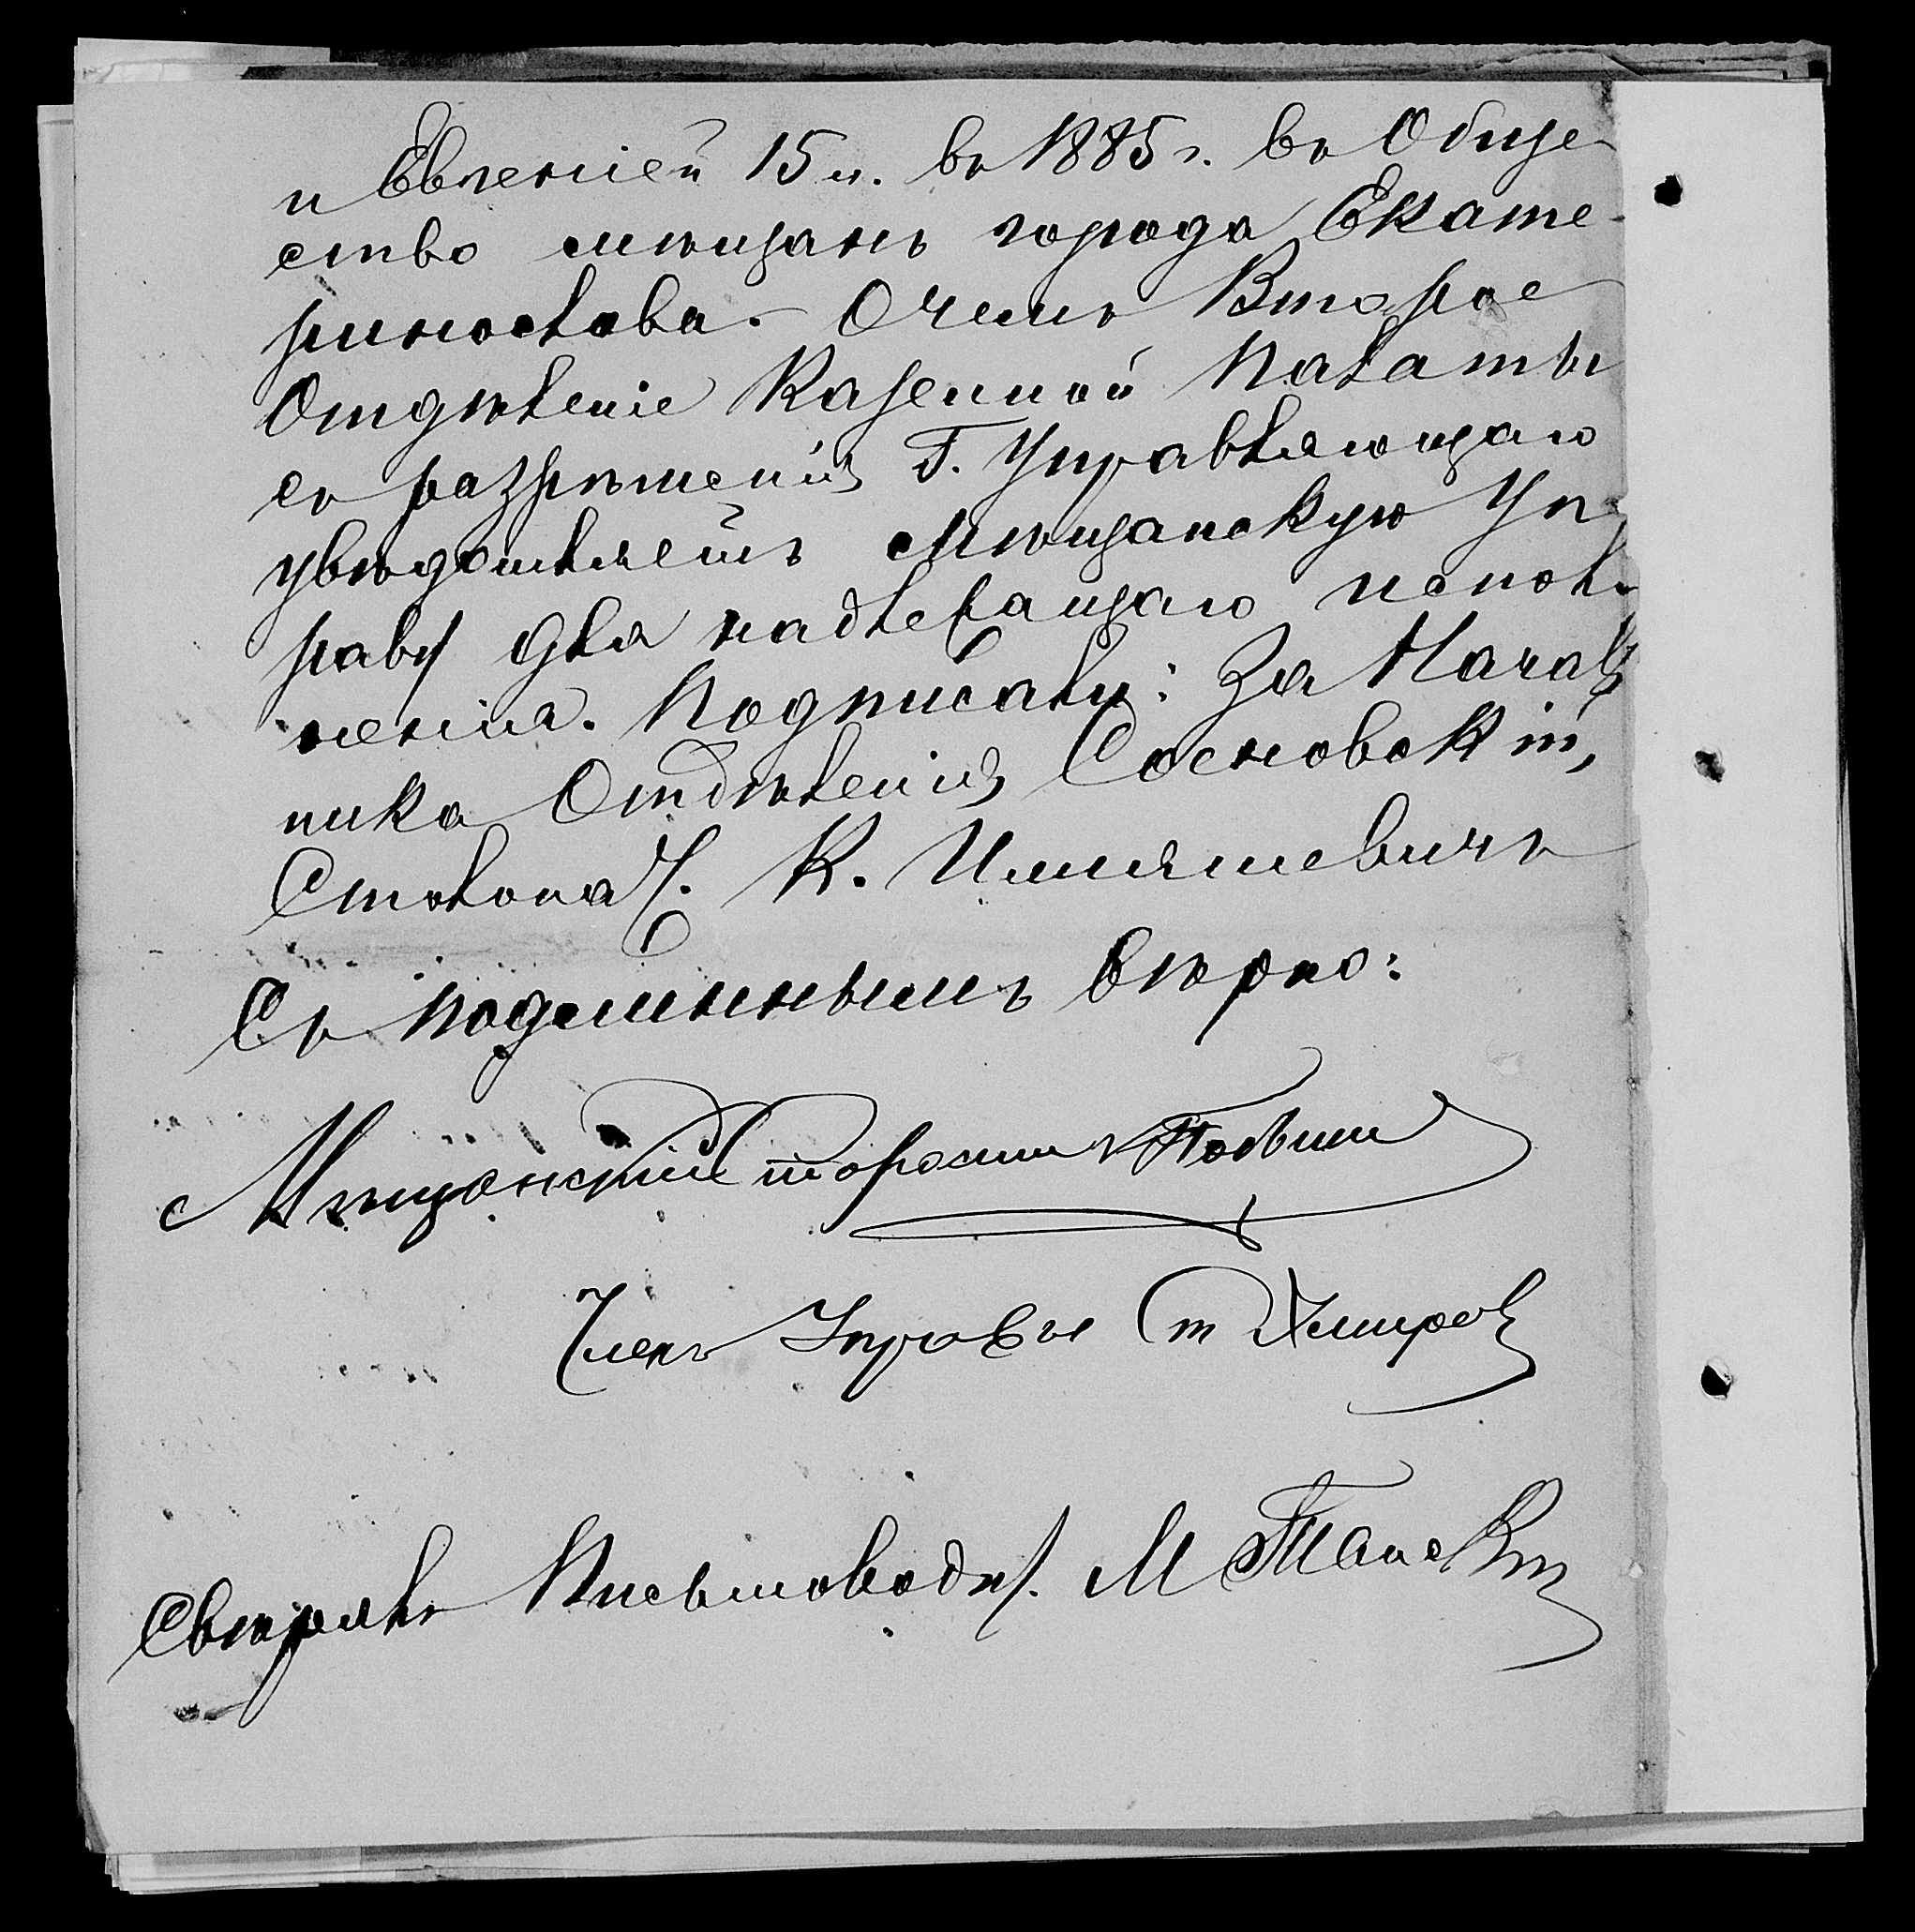 и Евгеніей 15 л. въ 1885 г. въ Обще-
ство мѣщанъ города Екате-
ринослава. О чемъ Второе
Отдѣленіе Казенной Палаты
съ разрѣшенія Г. Управляющаго
увѣдомляетъ Мѣщанскую Уп-
раву для надлежащаго испол-
ненія. Подписали: За Началь
ника Отдѣленія Сосновскій,
Столонач. К.
Съ подлиннымъ вѣрно:
Мѣщанскій Староста
Членъ Управы
Свѣрялъ Письмовод.